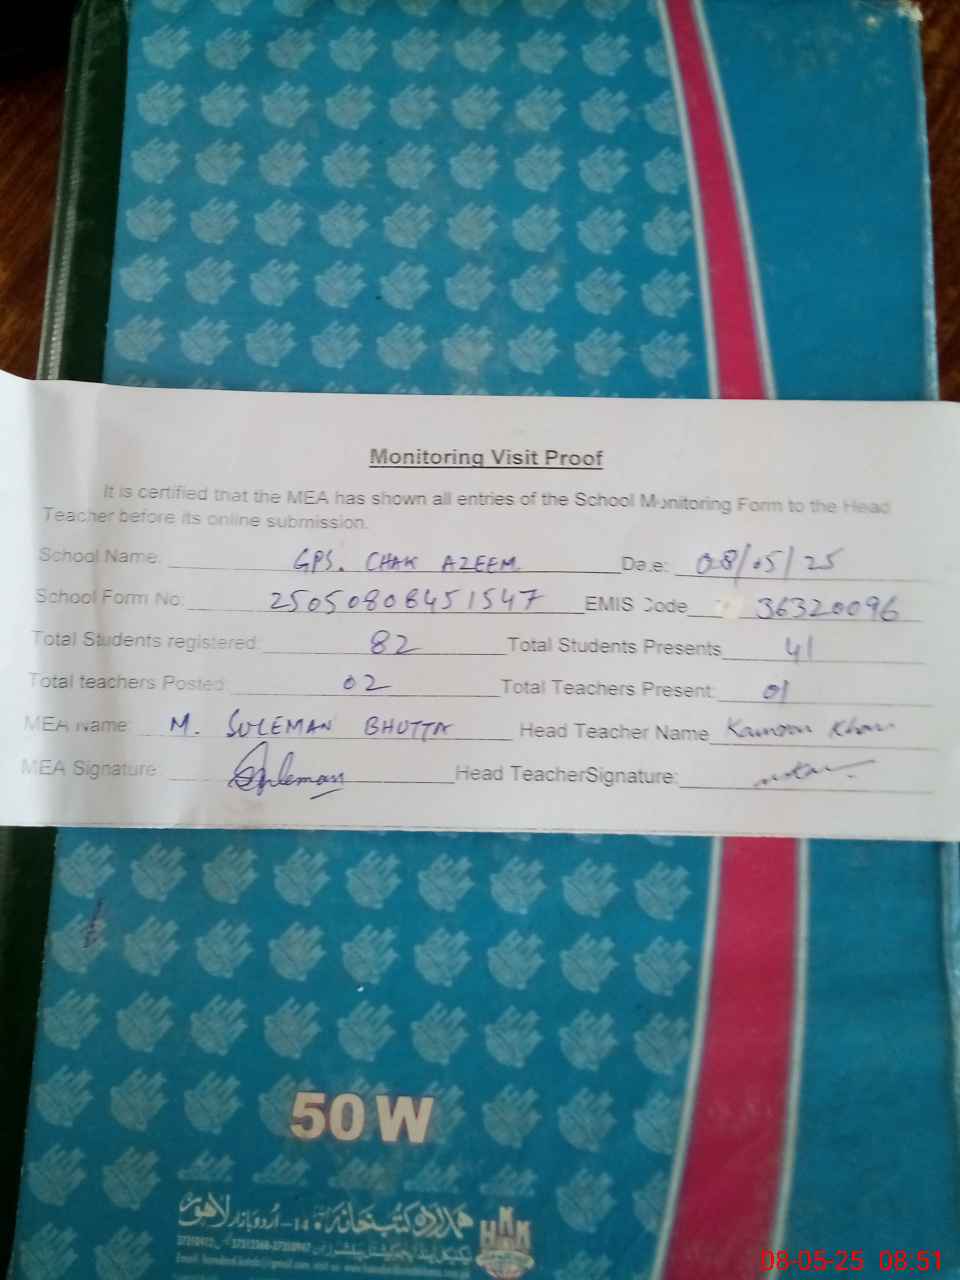 Monitoring Visit Proof
It is certified that the MEA has shown all entries of the School Monitoring Form to the Head
Teacher before its online submission.
School Name: GPS. CHAK AZEEM Date: 08/05/25
School Form No: 25050808451547 EMIS Code 36320096
Total Students registered: 82 Total Students Presents 41
Total teachers Posted: 02 Total Teachers Present: 01
MEA Name: M. SULEMAN BHUTTA Head Teacher Name Kamran Khan
MEA Signature: Suleman Head TeacherSignature:
50 W
ہمدرد کتب خانہ 14-اُردو بازار لاہور
HKK
08-05-25 08:51